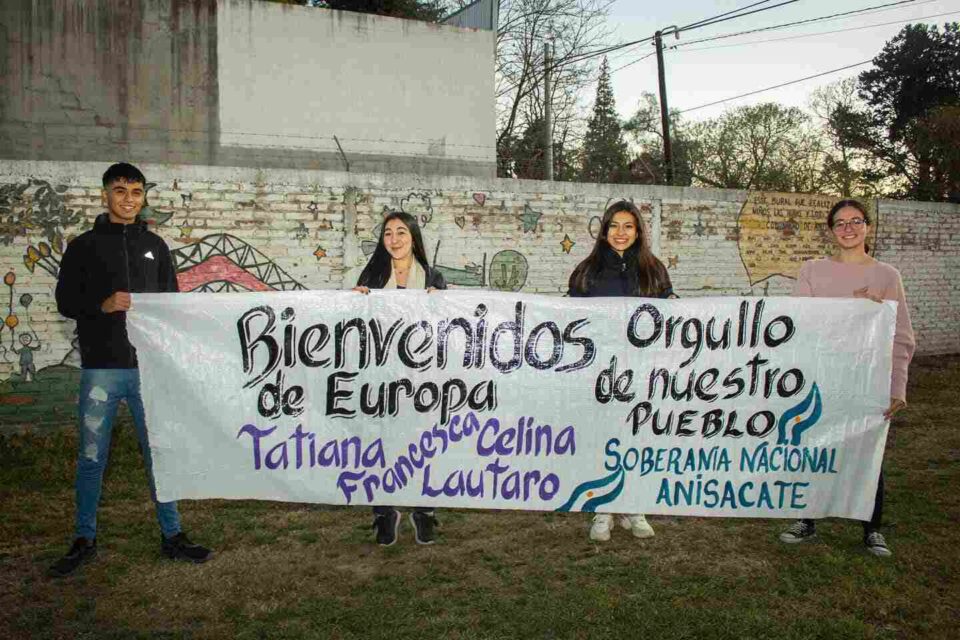 Bienvenidos
de Europa
Tatiana Francesca Celina
Lautaro
Orgullo
de nuestro
PUEBLO
SOBERANÍA NACIONAL
ANISACATE
ESTE MURAL FUE
NIÑOS DE